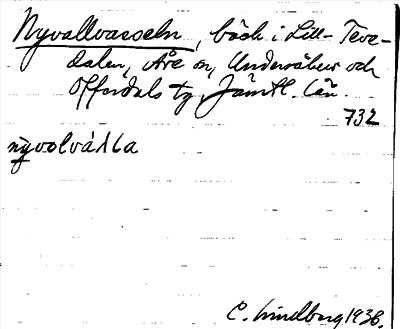 Nyvallvasseln, bäck i Lill-Teve-
dalen, Åre sn, Undersåkers och
Offerdals tg, Jämtl. län.
732
C. Lindberg 1938.